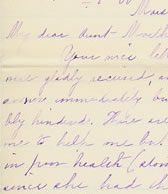 My dear Aunt-
Your nice let
me gladly received, a
answer immediately bu
bly hindered. There are
me to help me but
in poor health (alon
since she had